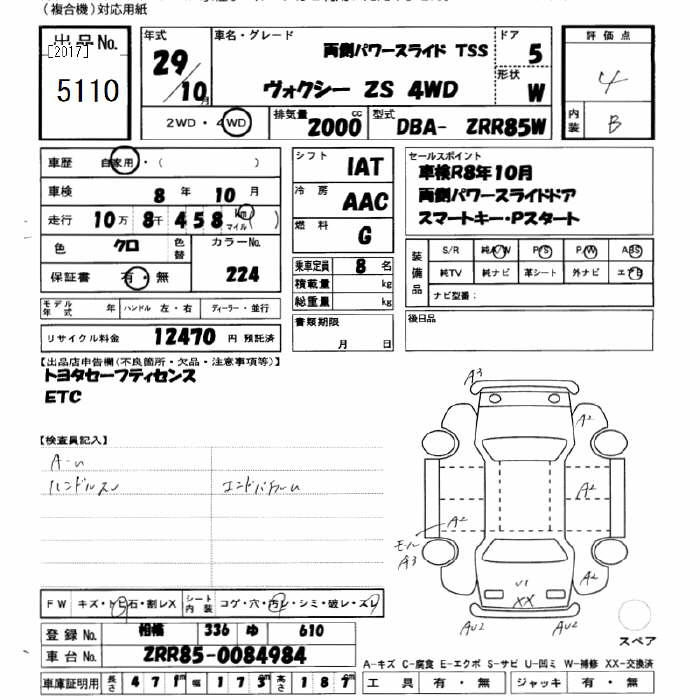 (複合機)対応用紙
出品No.
[2017]
5110
年式
29/10月
車名・グレード
両側パワースライド TSS
ヴォクシー ZS 4WD
ドア
5
形状
W
評価点
4
内装
B
2WD・4WD
排気量
2000cc
型式
DBA- ZRR85W
車歴 自家用・( )
車検 8年 10月
走行 10万 8千 458 km マイル ( )
色 クロ 色替 カラーNo.
224
保証書 有・無
モデル年式 年 ハンドル 左・右 ディーラー・並行
リサイクル料金 12470 円 預託済
シフト IAT
冷房 AAC
燃料 G
乗車定員 8 名
積載量 kg
総重量 kg
書類期限
月 日
セールスポイント
車検R8年10月
両側パワースライドドア
スマートキー・Pスタート
装備品
S/R 純A/W P/S P/W ABS
純TV 純ナビ 革シート 外ナビ エアB
ナビ型番:
後日品
【出品店申告欄(不良箇所・欠品・注意事項等)】
トヨタセーフティセンス
ETC
【検査員記入】
A-u
ハンドルスレ エンドバチルム
A3
A2
A2
A2
モール
A3
A2
U1
XX
AU2
AU2
スペア
FW キズ・トビ石・割レX シート内装 コゲ・穴・汚レ・シミ・破レ・スレ
登録No. 相模 336 ゆ 610
車台No. ZRR85-0084984
車庫証明用 長さ 471cm 幅 173cm 高さ 187cm
A-キズ C-腐食 E-エクボ S-サビ U-凹ミ W-補修 XX-交換済
工具 有・無 ジャッキ 有・無